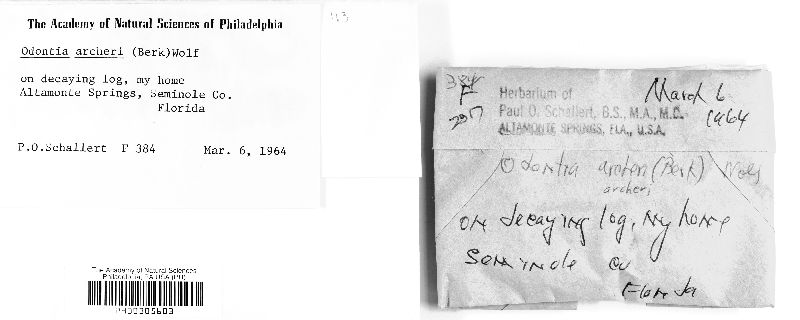 The Academy of Natural Sciences of Philadelphia
Odontia archeri (Berk)Wolf
on decaying log, my home
Altamonte Springs, Seminole Co.
Florida
P.O.Schallert F 384 Mar. 6, 1964
The Academy of Natural Sciences
Philadelphia, PA USA (PH)
PH00305603
113
384
F
Herbarium of
Paul O. Schallert, B.S., M.A., M.D.
ALTAMONTE SPRINGS, FLA., U.S.A.
March 6
1964
Odontia archeri (Berk) Wolf
archeri
on decaying log, my home
Seminole Co
Florida